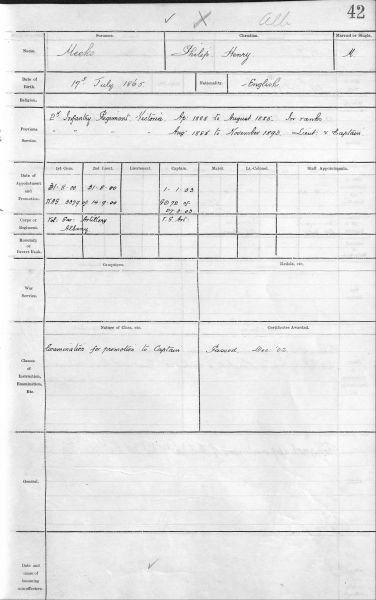 Alb
42
Surname.
Christian.
Married or Single.
Name.
Meeks
Philip Henry
M.
Date of Birth.
17th July 1865
Nationality.
English
Religion.
Previous Service.
2d Infantry Regiment Victoria Ap. 1884 to August 1885. In ranks
" " " " Aug 1885 to November 1893 Lieut. & Captain
Date of Appointment and Promotion.
1st Com.
2nd Lieut.
Lieutenant.
Captain.
Major.
Lt.-Colonel.
Staff Appointments.
31-8-00
31-8-00
1-1-03
of 14-9-00
Corps or Regiment.
Vol. Gar. Artillery
Albany
Honorary or Brevet Rank.
War Service.
Campaigns.
Medals, etc.
Classes of Instruction, Examination, Etc.
Nature of Class, etc.
Certificates Awarded.
Examination for promotion to Captain
Passed Dec '02
General.
Date and cause of becoming non-effective.